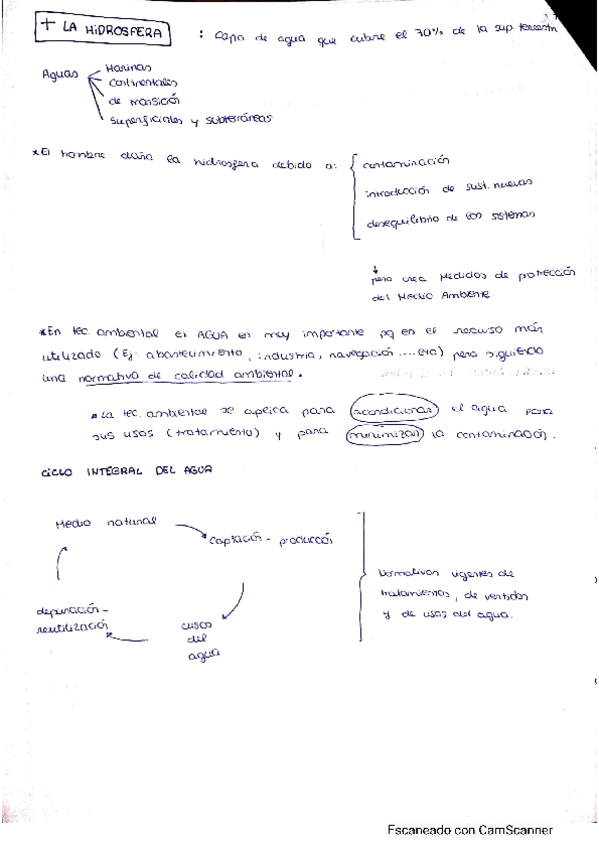 + LA HIDROSFERA : Capa de agua que cubre el 70% de la sup. terrestre
Aguas
Marinas
Continentales
de transición
superficiales y subterráneas
*El hombre daña la hidrosfera debido a:
contaminación
introducción de sust. nuevas
desequilibrio de los sistemas
↓
pero crea Medidas de protección
del Medio Ambiente.
*En tec. ambiental el AGUA es muy importante pq es el recurso más
utilizado (Ej: abastecimiento, industria, navegación .... etc) pero siguiendo
una normativa de calidad ambiental.
• La tec. ambiental se aplica para acondicionar el agua para
sus usos (tratamiento) y para minimizar la contaminación.
CICLO INTEGRAL DEL AGUA
Medio natural
captación - producción
usos
del
agua
depuración -
reutilización
Normativas vigentes de
tratamientos, de vertidos
y de usos del agua.
Escaneado con CamScanner